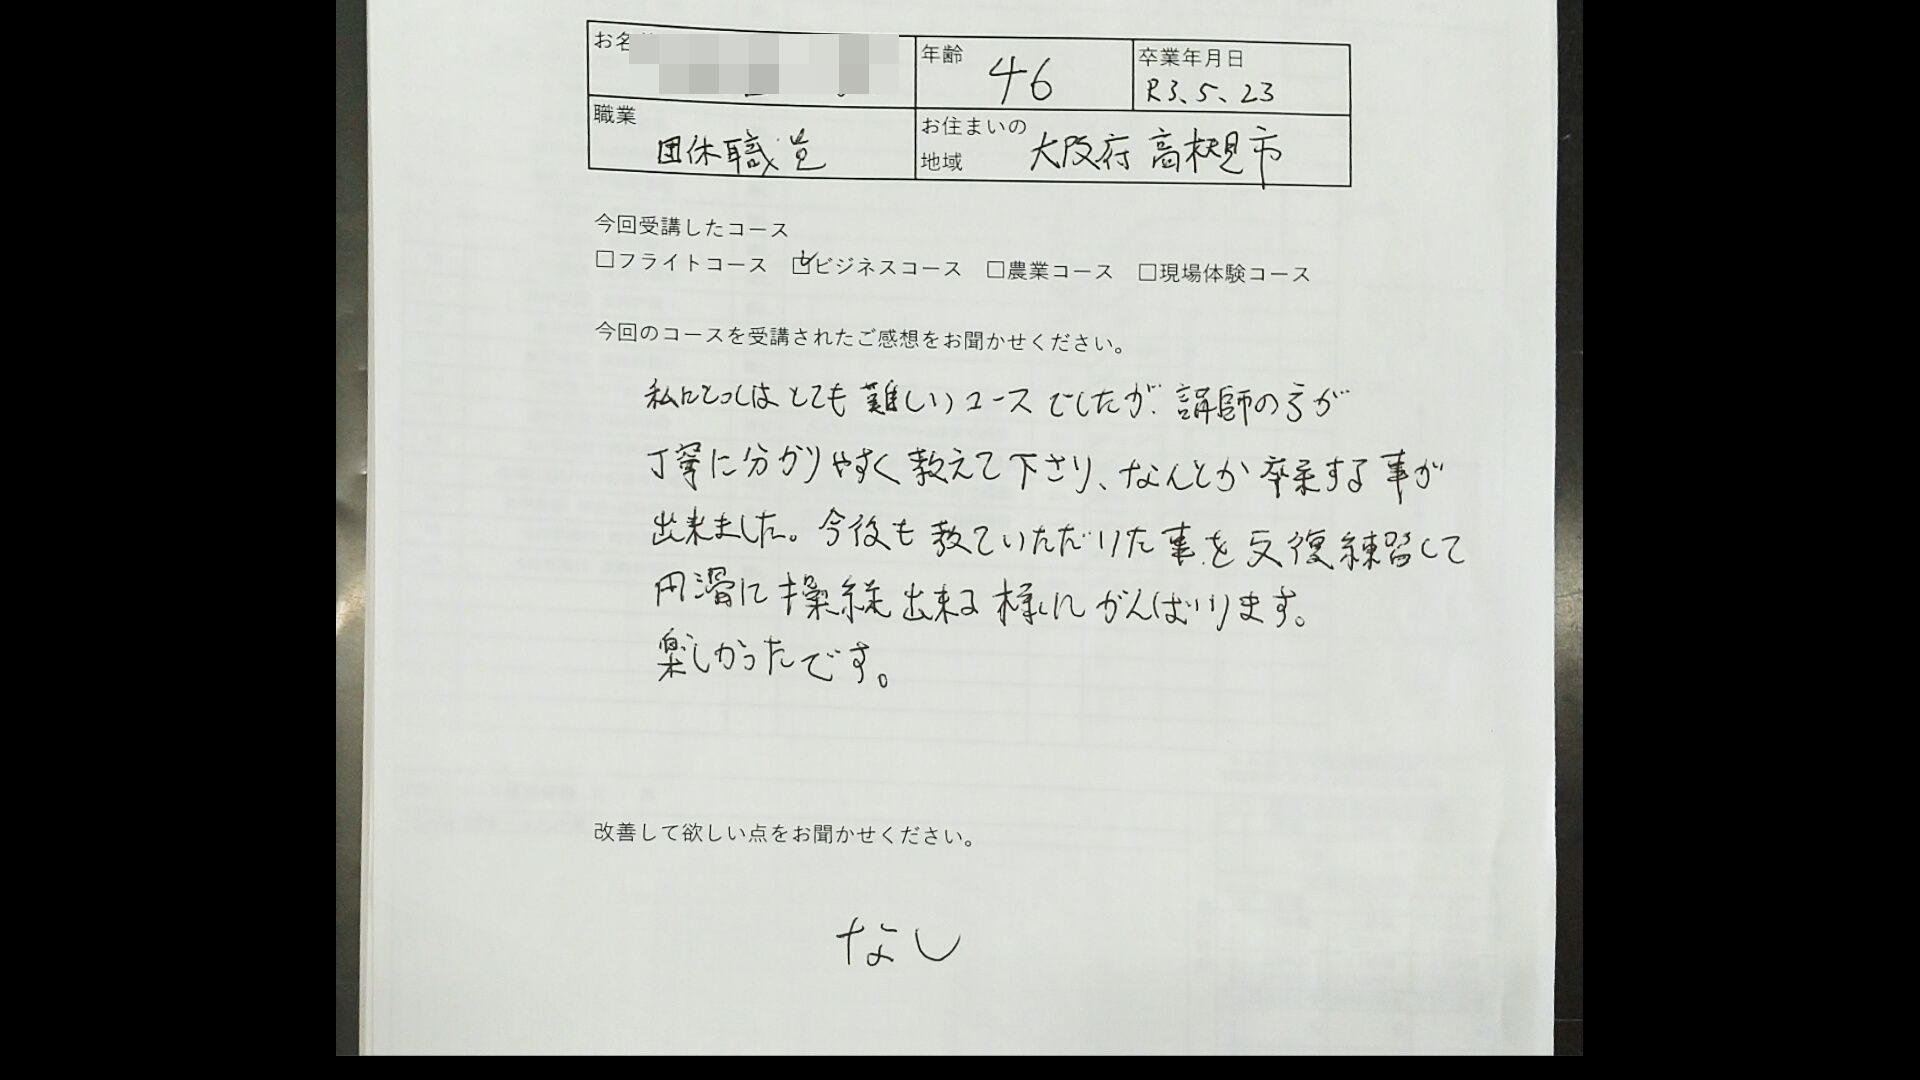 お名
年齢 46
卒業年月日 R3.5.23
職業 団体職員
お住まいの地域 大阪府高槻市
今回受講したコース
□フライトコース ☑ビジネスコース □農業コース □現場体験コース
今回のコースを受講されたご感想をお聞かせください。
私にとってはとても難しいコースでしたが、講師の方が
丁寧に分かりやすく教えて下さり、なんとか卒業する事が
出来ました。今後も教ていただいた事を反復練習して
円滑に操縦出来る様にがんばります。
楽しかったです。
改善して欲しい点をお聞かせください。
なし